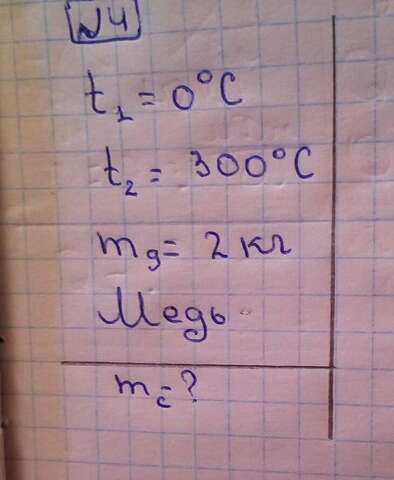 №4
t₁ = 0°C
t₂ = 300°C
m₉ = 2 кг
Медь
m_c = ?